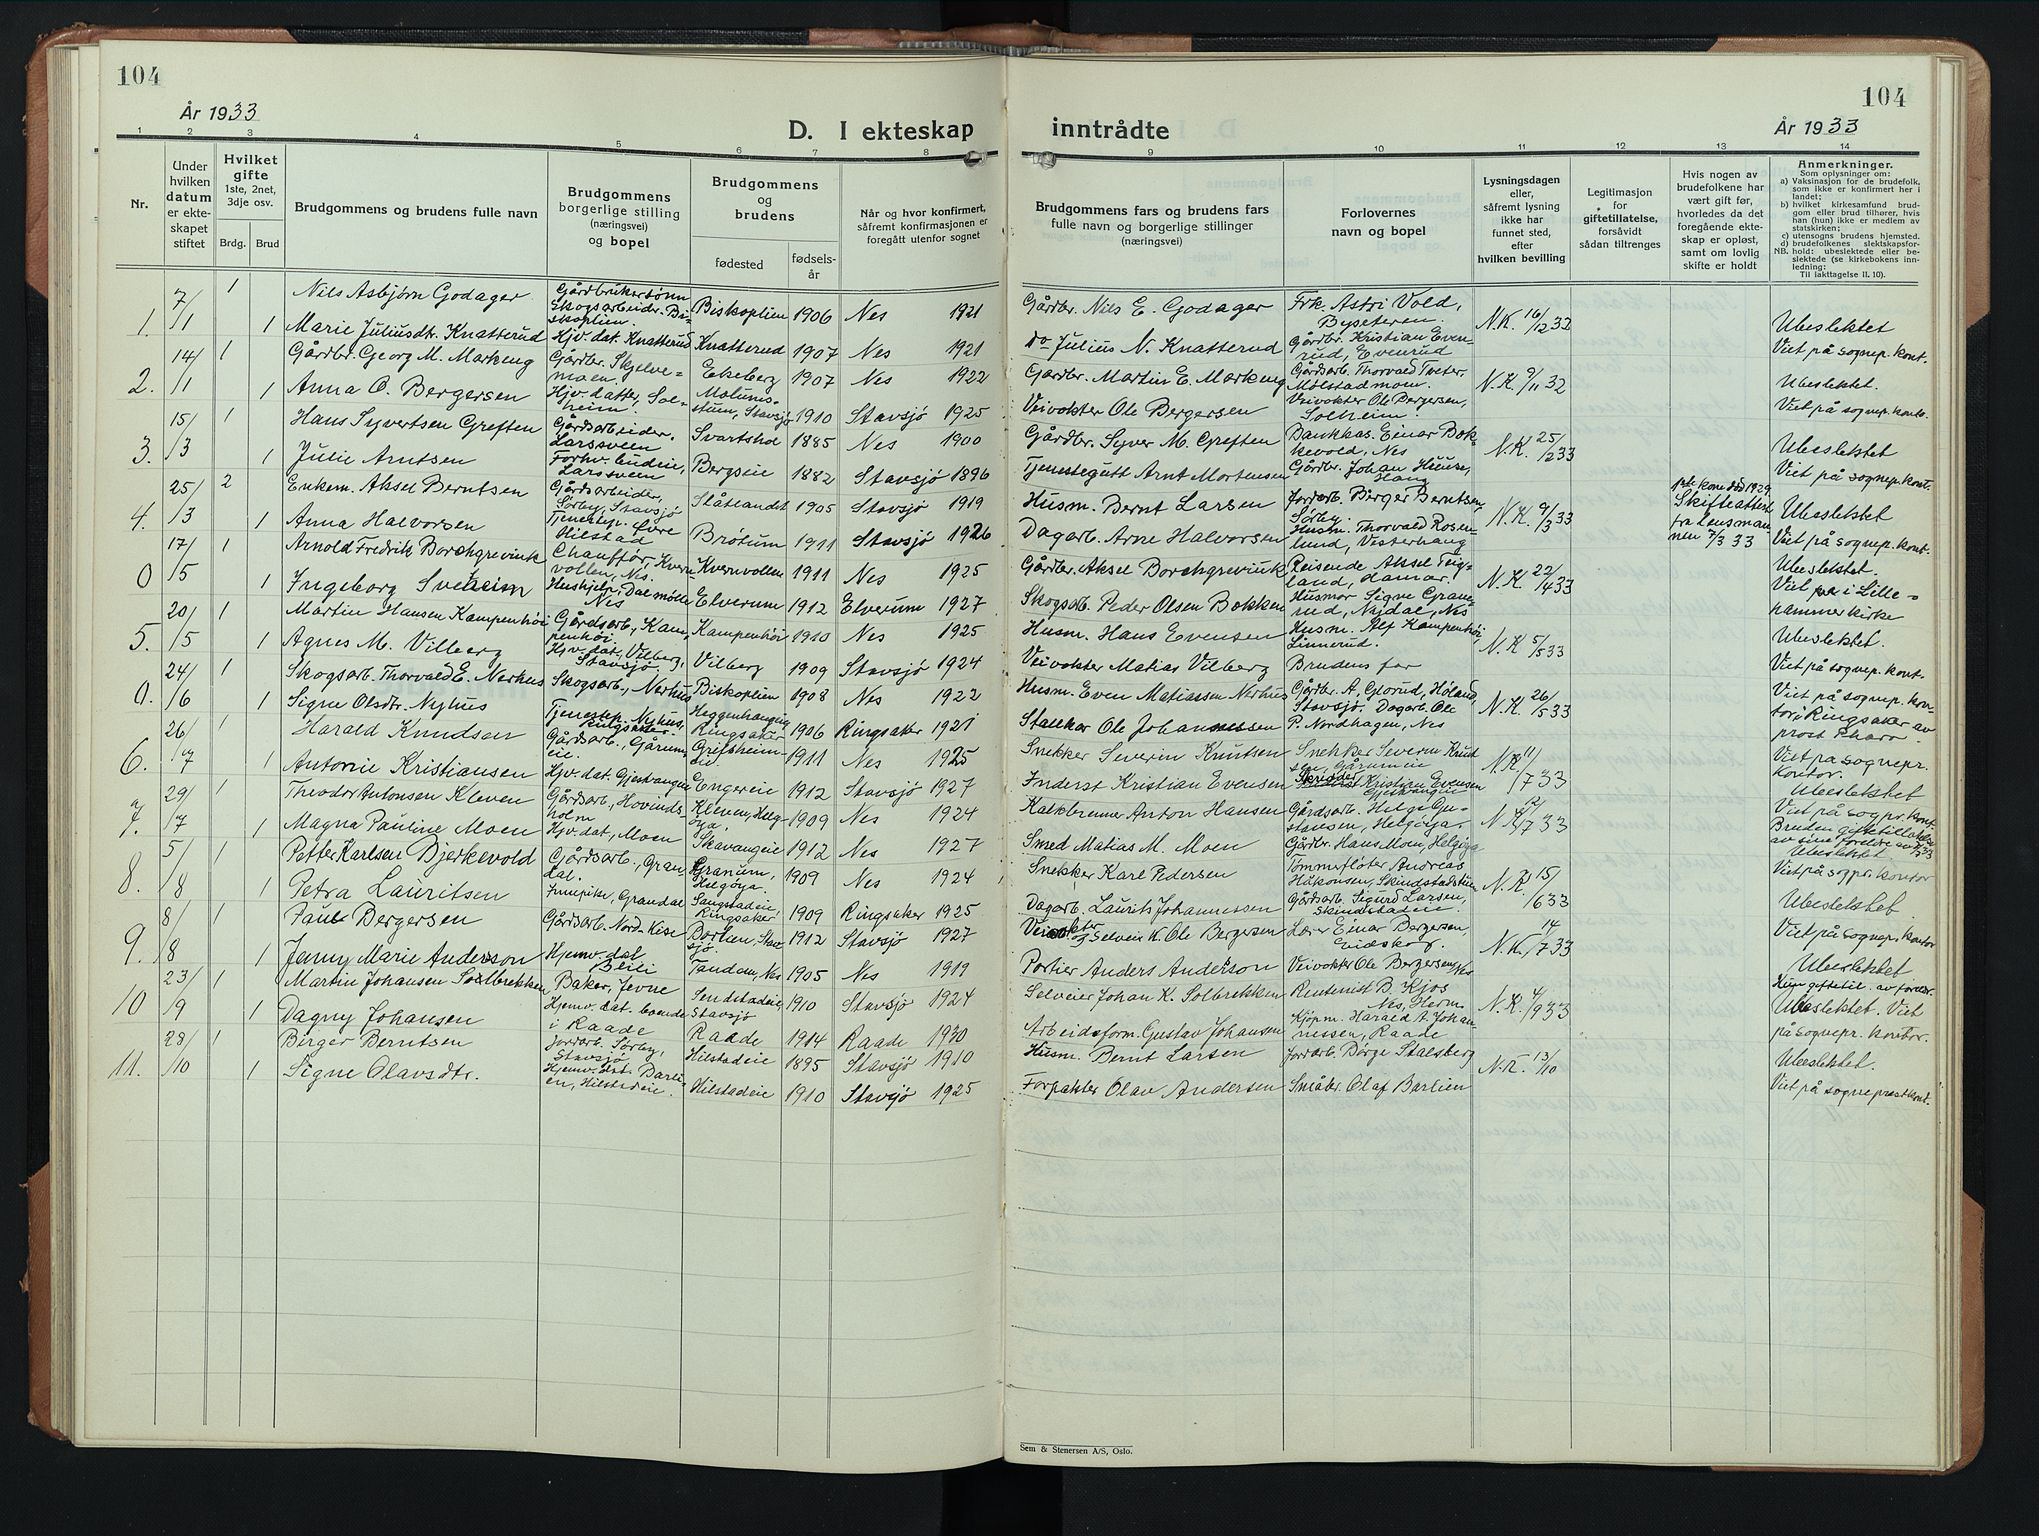 104
År 1933
D. I ekteskap
1 2 3 4 5 6 7 8
Nr.
Under hvilken datum er ekteskapet stiftet
Hvilket gifte 1ste, 2net, 3dje osv.
Brdg. Brud
Brudgommens og brudens fulle navn
Brudgommens borgerlige stilling (næringsvei) og bopel
Brudgommens og brudens
fødested fødselsår
Når og hvor konfirmert, såfremt konfirmasjonen er foregått utenfor sognet
1. 7/1 1 Nils Asbjørn Godager Gårdbrukersønn Skogsarbeider. Biskoplien. Biskoplien 1906 Nes 1921
1 Marie Juliusdtr. Knatterud Hjv. dat. Knatterud Knatterud 1907 Nes 1921
2. 14/1 1 Gårdbr. Georg M. Markeng Gårdbr. Skjelvemoen. Ekeberg 1907 Nes 1922
1 Anna O. Bergersen Hjv. datter, Solheim. Stavsjø 1910 Stavsjø 1925
3. 15/3 1 Hans Syvertsen Greften Gårdsarbeider. Larsveen Svartshol 1885 Nes 1900
1 Julie Arntsen Forhv. budeie, Larsveen Bergseie 1882 Stavsjø 1896
4. 25/3 2 Enkem. Aksel Berntsen Gårdsarbeider, Sørby, Stavsjø 1905 Stavsjø 1919
1 Anna Halvorsen Tjenestep. Øvre Hilstad Brøtum 1911 Stavsjø 1926
0 17/5 1 Arnold Fredrik Borchgrevink Chauffør, Kvernvollen, Nes. Kvernvollen 1911 Nes 1925
1 Ingeborg Sveheim Hushjelp, Dæmølla Nes Elverum 1912 Elverum 1927
5. 20/5 1 Martin Hansen Kampenhøi Gårdsarb., Kampenhøi Kampenhøi 1910 Nes 1925
1 Agnes M. Vilberg Hjv. dat., Vilberg, Stavsjø Vilberg 1909 Stavsjø 1924
0. 24/6 1 Skogsarb. Thorvald E. Nerhus Skogsarb., Nerhus Biskoplien 1908 Nes 1922
1 Signe Olsdtr. Nyhus Tjenestep. Nyhus, Ringsaker Ringsaker 1906 Ringsaker 1921
6. 26/7 1 Harald Knudsen Gårdsarb., Gårumeie. Grefsheimeie 1911 Nes 1925
1 Antonie Kristiansen Hjv. dat. Gjestvangen Engereie 1912 Stavsjø 1927
7. 29/7 1 Theodor Antonsen Kleven Gårdsarb., Hovindsholm Kleven, Helgøya. 1909 Nes 1924
1 Magna Pauline Moen Hjv. dat, Moen Skavangeie 1912 Nes 1927
8. 5/8 1 Petter Karlsen Bjerkevold Gårdsarb., Grandal. Granum, Helgøya. 1909 Nes 1924
1 Petra Lauritsen Innepike, Grandal Sangstadeie Ringsaker 1909 Ringsaker 1925
9. 8/8 1 Paul Bergersen Gårdsarb. Nord-Kise Borlien, Stavsjø 1912 Stavsjø 1927
1 Jenny Marie Anderson Hjemv. dat Bleie Tandom, Nes 1905 Nes 1919
10 23/9 1 Martin Johansen Solbrekken Baker, Jevne Sendstadeie, Stavsjø 1910 Stavsjø 1924
1 Dagny Johansen Hjemv. dat. boende i Raade Raade 1914 Raade 1930
11. 28/10 1 Birger Berntsen Jordarb. Sørby, Stavsjø Hilstadeie 1895 Stavsjø 1910
1 Signe Olavsdtr. Hjemv. dat. Barlien, Hilstadeie. Hilstadeie 1910 Stavsjø 1925
104
inntrådte
År 1933
9 10 11 12 13 14
Brudgommens fars og brudens fars fulle navn og borgerlige stillinger (næringsvei)
Forlovernes navn og bopel
Lysningsdagen eller, såfremt lysning ikke har funnet sted, efter hvilken bevilling
Legitimasjon for giftetillatelse, forsåvidt sådan tiltrenges
Hvis nogen av brudefolkene har vært gift før, hvorledes da det foregående ekteskap er opløst, samt om lovlig skifte er holdt
Anmerkninger.
Som oplysninger om:
a) Vaksinasjon for de brudefolk, som ikke er konfirmert her i landet;
b) hvilket kirkesamfund brudgom eller brud tilhører, hvis han (hun) ikke er medlem av statskirken;
c) utensogns brudens hjemsted.
d) brudefolkenes slektskapsforhold: ubeslektede eller beslektede (se kirkebokens innledning:
NB. Til iakttagelse II. 10).
Gårdbr. Nils E. Godager Frk. Astri Vold, Byseteren. N.K. 16/12 32 Ubeslektet
do Julius N. Knatterud Gårdbr. Kristian Evenrud, Evenrud Viet på sognep. kont.
Gårdbr. Martin E. Markeng Gårdsarb. Thorvald Tveter, Mølstadmoen. N.K. 9/11 32 Ubeslektet.
Veivokter Ole Bergersen Veivokter Ole Bergersen, Solheim. Viet på sognep. kont.
Gårdbr. Syver M. Greften Bankkas. Einar Bokkevold, Nes N.K. 25/2 33 Ubeslektet
Tjenestegutt Arnt Mortensen Gårdbr. Johan Huuse, Haug Viet på sognep. kont.
Husm. Bernt Larsen Jordarb. Birger Berntsen Sørby. N.K. 9/3 33 1ste kone død 1929 Skifteattest fra lensmannen 7/3 33 Ubeslektet
Dagarb. Arne Halvorsen Husm. Thorvald Rosenlund, Vesterhaug Viet på sognepr. kont.
Gårdbr. Aksel Borchgrevink Reisende Aksel Teigland, Hamar. N.K. 22/4 33 Ubeslektet.
Skogsarb. Peder Olsen Bakken Husmor Signe Granerud, Nydal, Nes Viet i Lillehammer kirke
Husm. Hans Evensen Husm. Alf Kampenhøi, Linnerud. N.K 5/5 33 Ubeslektet.
Veivokter Matias Vilberg Brudens far Viet på sognepr. kont.
Husm. Even Matiassen Nerhus Gårdbr. A. Glorud, Høland, Stavsjø. N.K. 26/5 33 Viet på sognepr. kontor i Ringsaker av prost Pharo.
Ole Johannessen Dagarb. Ole P. Nordhagen, Nes
Snekker Severin Knutsen Snekker Severin Knutsen, Gårumeie N.K. 11/7 33 Viet på sognepr. kontor.
Inderst Kristian Evensen Kristian Evensen Gjestvangen Ubeslektet
Kalkbrenner Anton Hansen Gårdsarb. Helge Gustavsen, Helgøya. N.K. 12/7 33 Viet på sogpr. kont.
Smed Matias M. Moen Gårdbr. Hans Moen, Helgøya Bruden giftetillatelse av sine foreldre av 7/7 33 Ubeslektet
Snekker Karl Pedersen Tømmerfløter Andreas Håkonsen, Skindstadstuen N.K. 15/6 33 Viet på sogpr. kontor
Dagarb. Laurits Johannessen Gårdsarb. Sigurd Larsen, Skindstadeie. Ubeslektet.
Veivokter og Selveier K. Ole Bergersen Lærer Einar Bergersen, Eidskog. N.K. 14/7 33 Viet på sognepr. kontor
Portier Anders Anderson Veivokter Ole Bergersen, Nes Ubeslektet
Selveier Johan K. Solbrekken Rentenist B. Kjos Nes, Hedm. N.K. 4/9 33 Kun giftetil. av foreldr. Ubeslektet. Viet
Arbeidsform. Gustav Johansen Kjøpm. Harald A. Johannessen, Raade på sognepr. kontor.
Husm. Bernt Larsen Jordarb. Børge Stalsberg N.K. 13/10 Ubeslektet.
Forpakter Olav Andersen Småbr. Olaf Barlien Viet på sogneprestkont.
Sem & Stenersen A/S, Oslo.